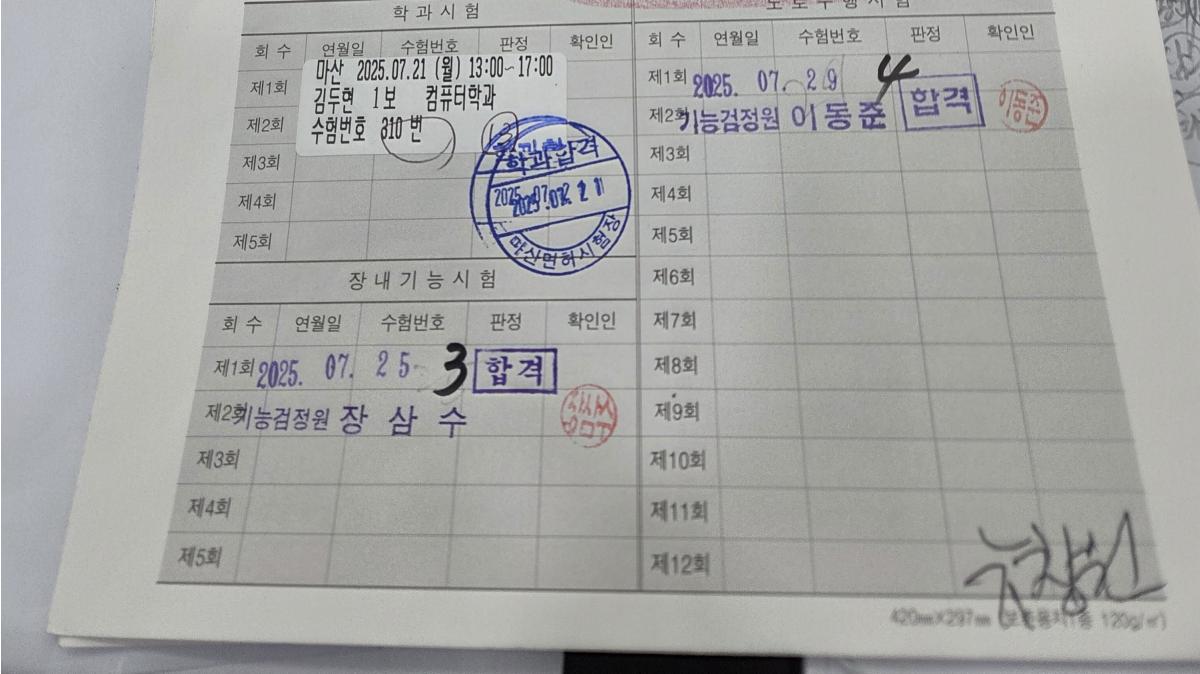 학과시험
회 수 연월일 수험번호 판정 확인인
마산 2025.07.21 (월) 13:00~17:00
제1회
김두현 1보 컴퓨터학과
제2회
수험번호 310 번
13
제3회
제4회
제5회
학과합격
마산면허시험장
장내기능시험
회 수 연월일 수험번호 판정 확인인
제1회 2025. 07. 25 3 합격
제2회 기능검정원 장 삼 수
제3회
제4회
제5회
도로주행시험
회 수 연월일 수험번호 판정 확인인
제1회 2025. 07. 29 4 합격
제2회 기능검정원 이동준
이동준
제3회
제4회
제5회
제6회
제7회
제8회
제9회
제10회
제11회
제12회
420mm×297mm
120g/㎡)